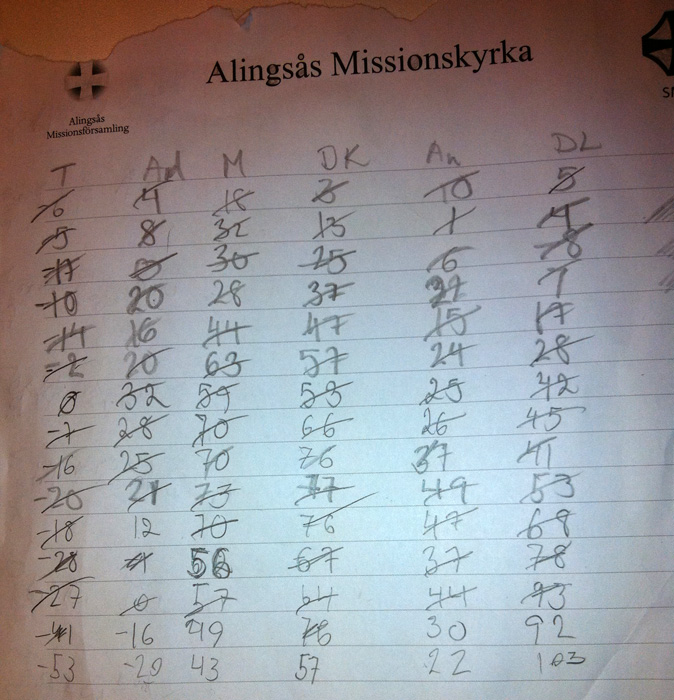 Alingsås Missionskyrka
SM
Alingsås
Missionsförsamling
T Ad M DK An DL
-6 4 18 3 10 5
-5 8 32 13 1 4
-17 30 25 6 -8
-10 20 28 37 27 1
-14 16 44 47 15 17
-2 20 63 57 24 28
0 32 59 53 25 42
-7 28 70 66 26 45
-16 25 70 76 37 41
-20 21 73 77 49 53
-18 12 70 76 47 69
-28 56 67 37 78
-27 0 57 64 44 93
-41 -16 49 30 92
-53 -20 43 57 22 103